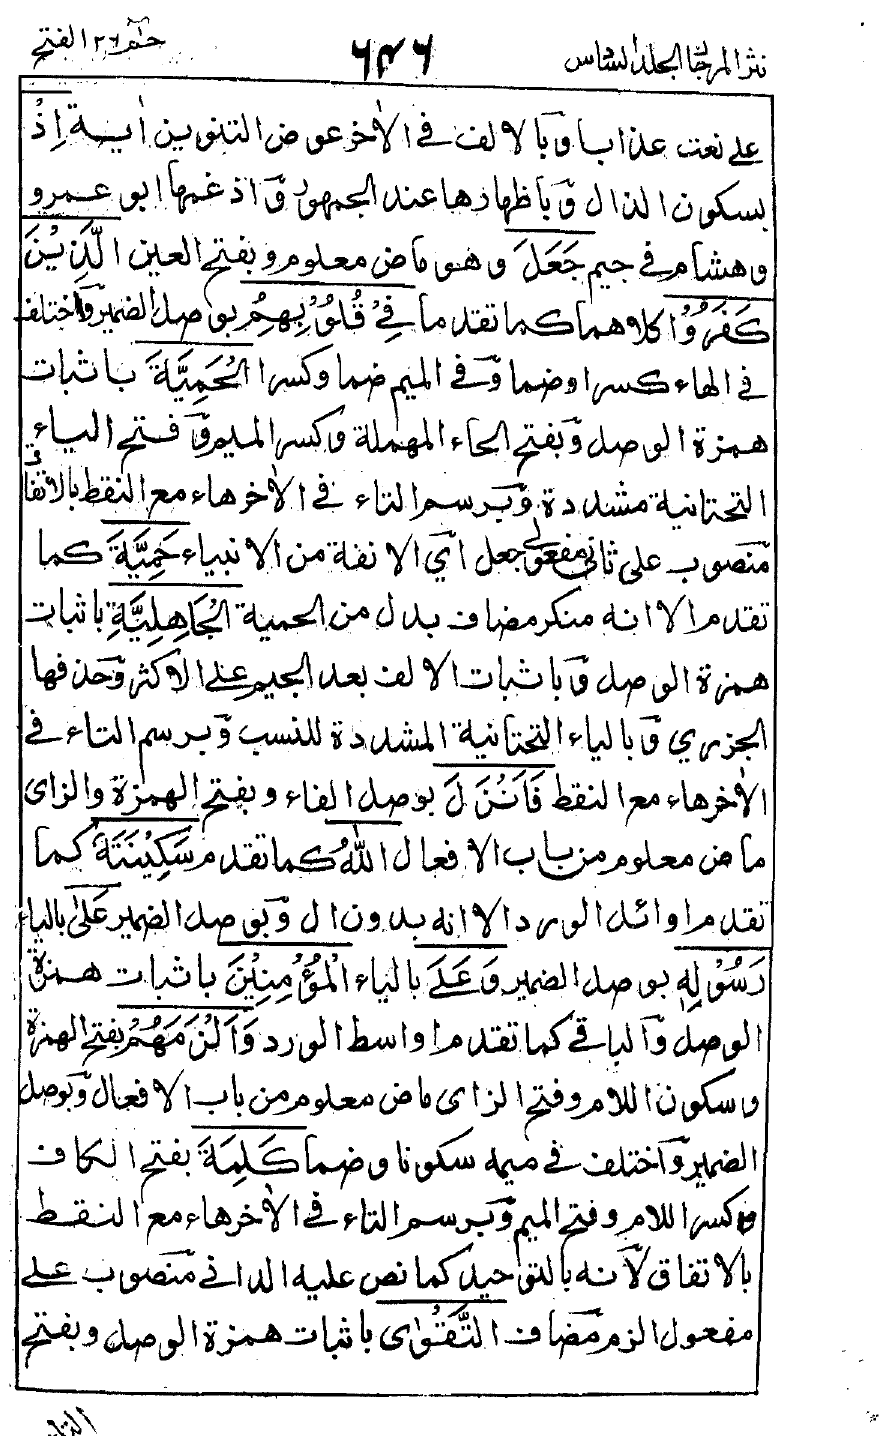 نثر المرجان الجلد السادس ٦٤٦ حم ٢٦ الفتح
على نعت عذابا وبالالف في الاخر عوض التنوين اية اِذْ
بسكون الذال وباظهارها عند الجمهور واذغمها ابو عمرو
وهشام في جيم جَعَلَ وهو ماض معلوم وبفتح العين الَّذِيْنَ
كَفَرُوْا كلاهما كما تقدما فِيْ قُلُوْبِهِمُ بوصل الضمير واختلف
في الهاء كسرا وضما وفي الميم ضما وكسرا الْحَمِيَّةَ باثبات
همزة الوصل وبفتح الحاء المهملة وكسر الميم وفتح الياء
التحتانية مشددة وبرسم التاء في الاخر هاء مع النقط بالاتفاق
منصوب على ثاني مفعولي جعل اي الانفة من الانبياء حَمِيَّةَ كما
تقدم الا انه منكر مضاف بدل من الحمية الْجَاهِلِيَّةِ باثبات
همزة الوصل وباثبات الالف بعد الجيم على الاكثر وحذفها
الجزري وبالياء التحتانية المشددة للنسب وبرسم التاء في
الاخر هاء مع النقط فَاَنْزَلَ بوصل الفاء وبفتح الهمزة والزاى
ماض معلوم من باب الافعال اللّٰهُ كما تقدم سَكِيْنَتَهٗ كما
تقدم اوائل الورد الا انه بدون ال وبوصل الضمير عَلٰى بالياء
رَسُوْلِهٖ بوصل الضمير وَعَلَى بالياء الْمُؤْمِنِيْنَ باثبات همزة
الوصل والباقي كما تقدم اواسط الورد وَاَلْزَمَهُمْ بفتح الهمزة
وسكون اللام وفتح الزاى ماض معلوم من باب الافعال وبوصل
الضمير واختلف في ميمه سكونا وضما كَلِمَةَ بفتح الكاف
وكسر اللام وفتح الميم وبرسم التاء في الاخر هاء مع النقط
بالاتفاق لانه بالتوحيد كما نص عليه الداني منصوب على
مفعول الزم مضاف التَّقْوٰى باثبات همزة الوصل وبفتح